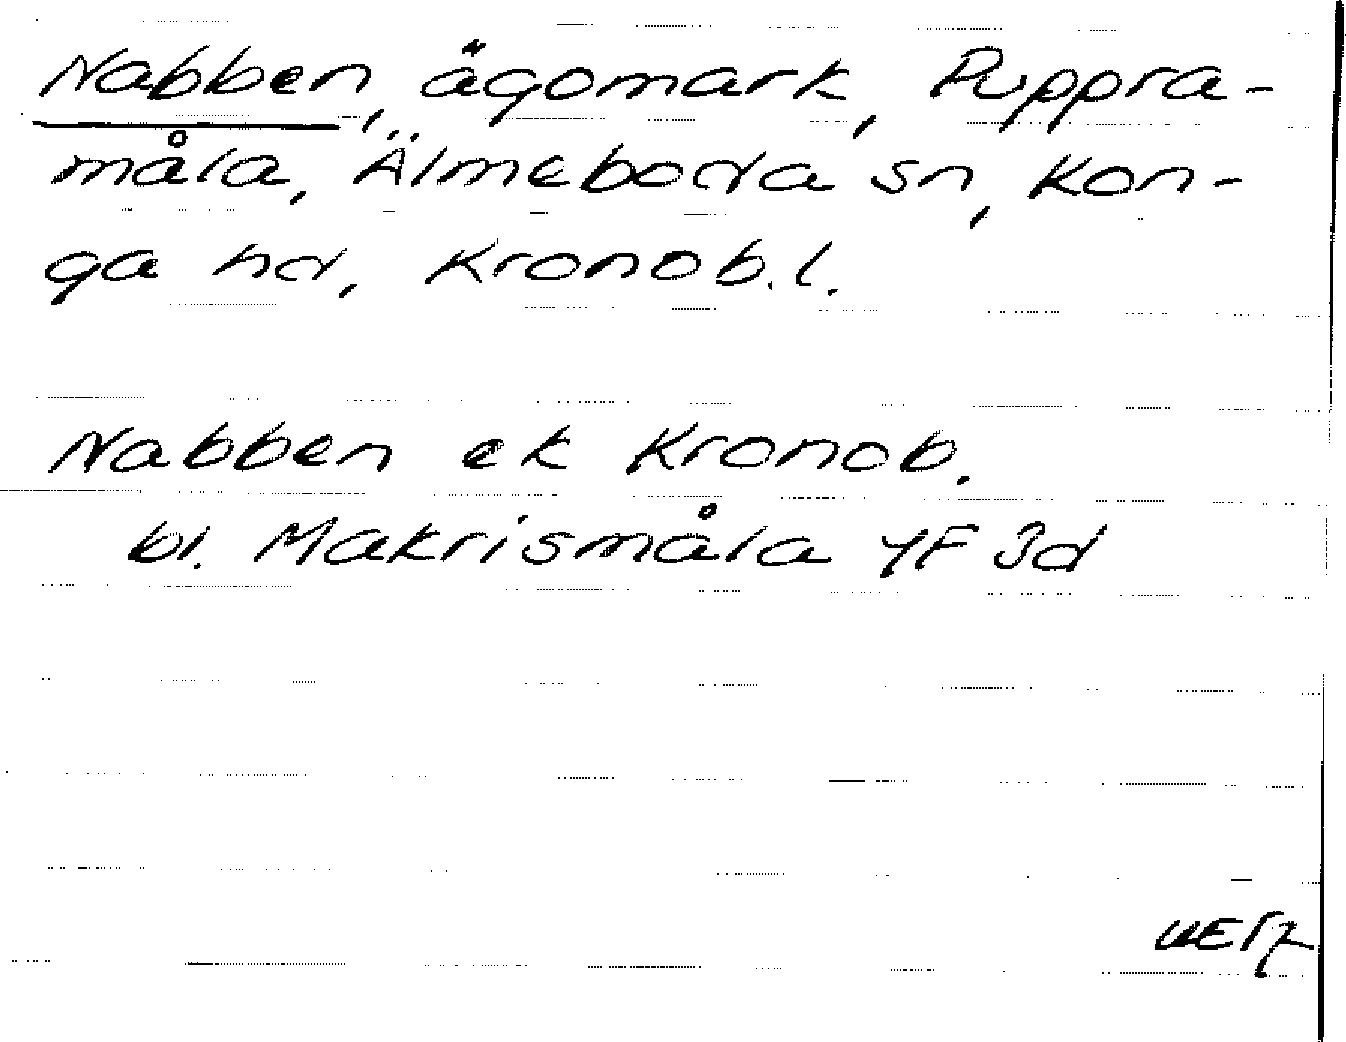 Nabben, ägomark, Puppra-
måla, Älmeboda sn, Kon-
ga hd, Kronob. l.
Nabben ek Kronob.
bl. Makrismåla 4F 3d